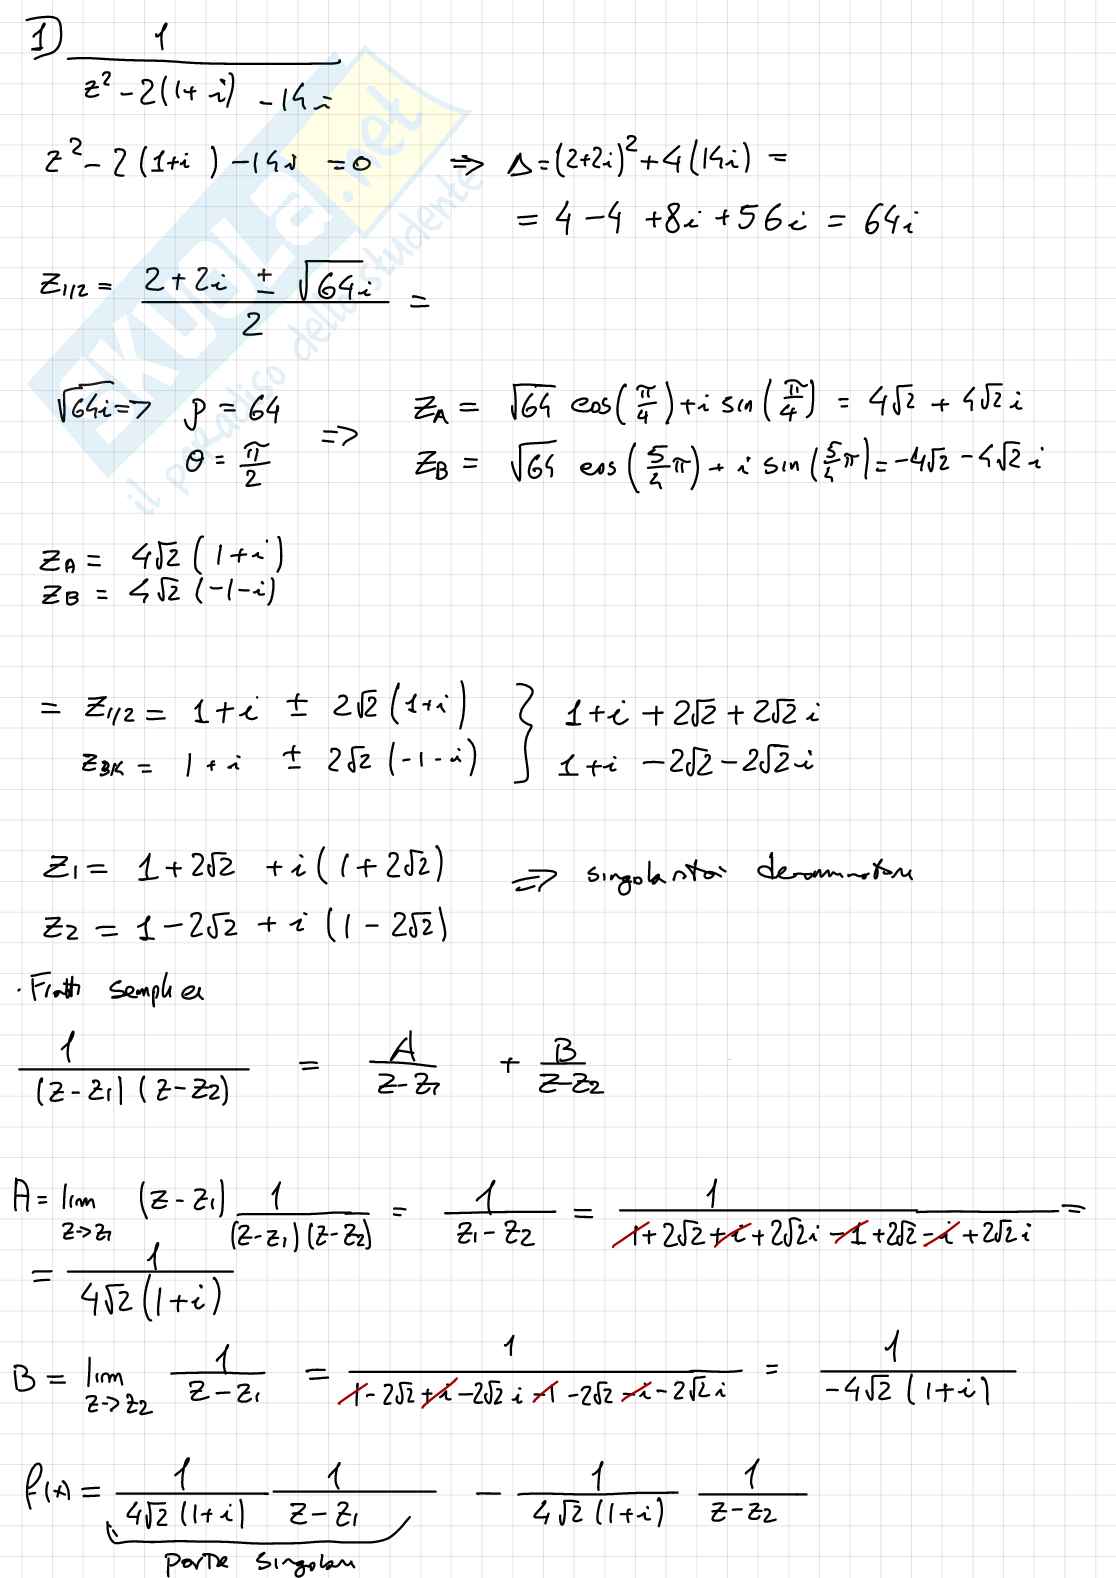 1) 1
z² - 2(1+i) - 14i
z² - 2(1+i) - 14i = 0 => Δ = (2+2i)² + 4(14i) =
= 4 - 4 + 8i + 56i = 64i
z1/2 = 2 + 2i ± √64i =
2
√64i => ρ = 64 => zA = √64 cos(π/4) + i sin(π/4) = 4√2 + 4√2 i
θ = π/2 zB = √64 cos(5/4 π) + i sin(5/4 π) = -4√2 - 4√2 i
zA = 4√2 (1+i)
zB = 4√2 (-1-i)
= z1/2 = 1+i ± 2√2 (1+i) } 1+i + 2√2 + 2√2 i
z3/4 = 1+i ± 2√2 (-1-i) 1+i - 2√2 - 2√2 i
z1 = 1+2√2 + i(1+2√2) => singolarità denominatore
z2 = 1-2√2 + i(1-2√2)
· Fratti semplici
1 = A + B
(z-z1)(z-z2) z-z1 z-z2
A = lim (z-z1) 1 = 1 = 1 =
z->z1 (z-z1)(z-z2) z1-z2 1+2√2+i+2√2i-1+2√2-i+2√2i
= 1
4√2(1+i)
B = lim 1 = 1 = 1
z->z2 z-z1 1-2√2+i-2√2i-1-2√2-i-2√2i -4√2(1+i)
f(z) = 1 1 - 1 1
4√2(1+i) z-z1 4√2(1+i) z-z2
parte singolare
SKUOLA.net
il paradiso dello studente